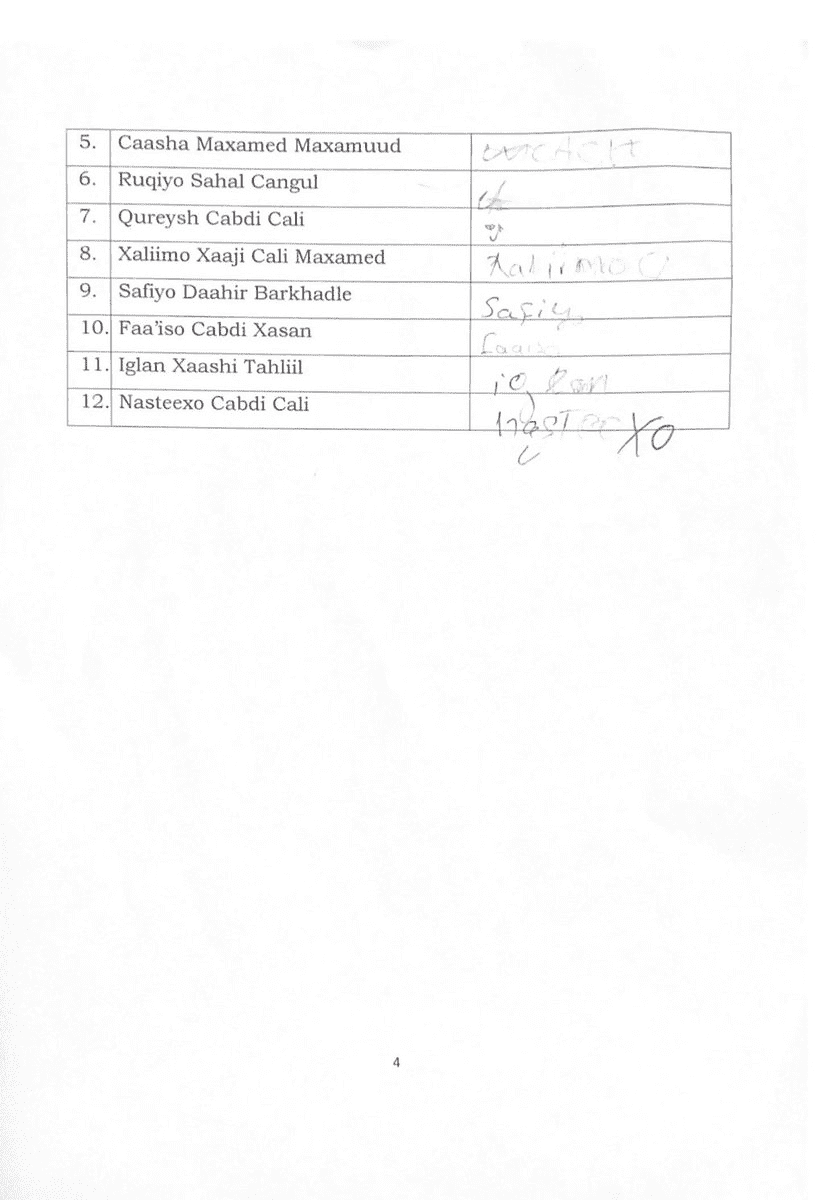 5. Caasha Maxamed Maxamuud
6. Ruqiyo Sahal Cangul
7. Qureysh Cabdi Cali
8. Xaliimo Xaaji Cali Maxamed Xaliimo
9. Safiyo Daahir Barkhadle Safiyo
10. Faa'iso Cabdi Xasan
11. Iglan Xaashi Tahliil
12. Nasteexo Cabdi Cali nasTeeXO
4